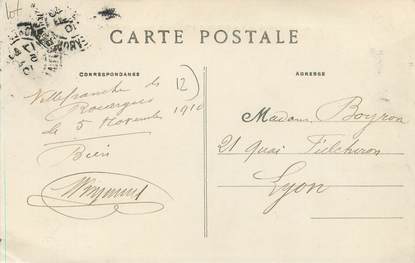 Lot
CARTE POSTALE
CORRESPONDANCE
ADRESSE
12
Villefranche de
Rouergue
le 5 Novembre 1910
Bien
Madame Boyron
21 quai Tilchiron
Lyon